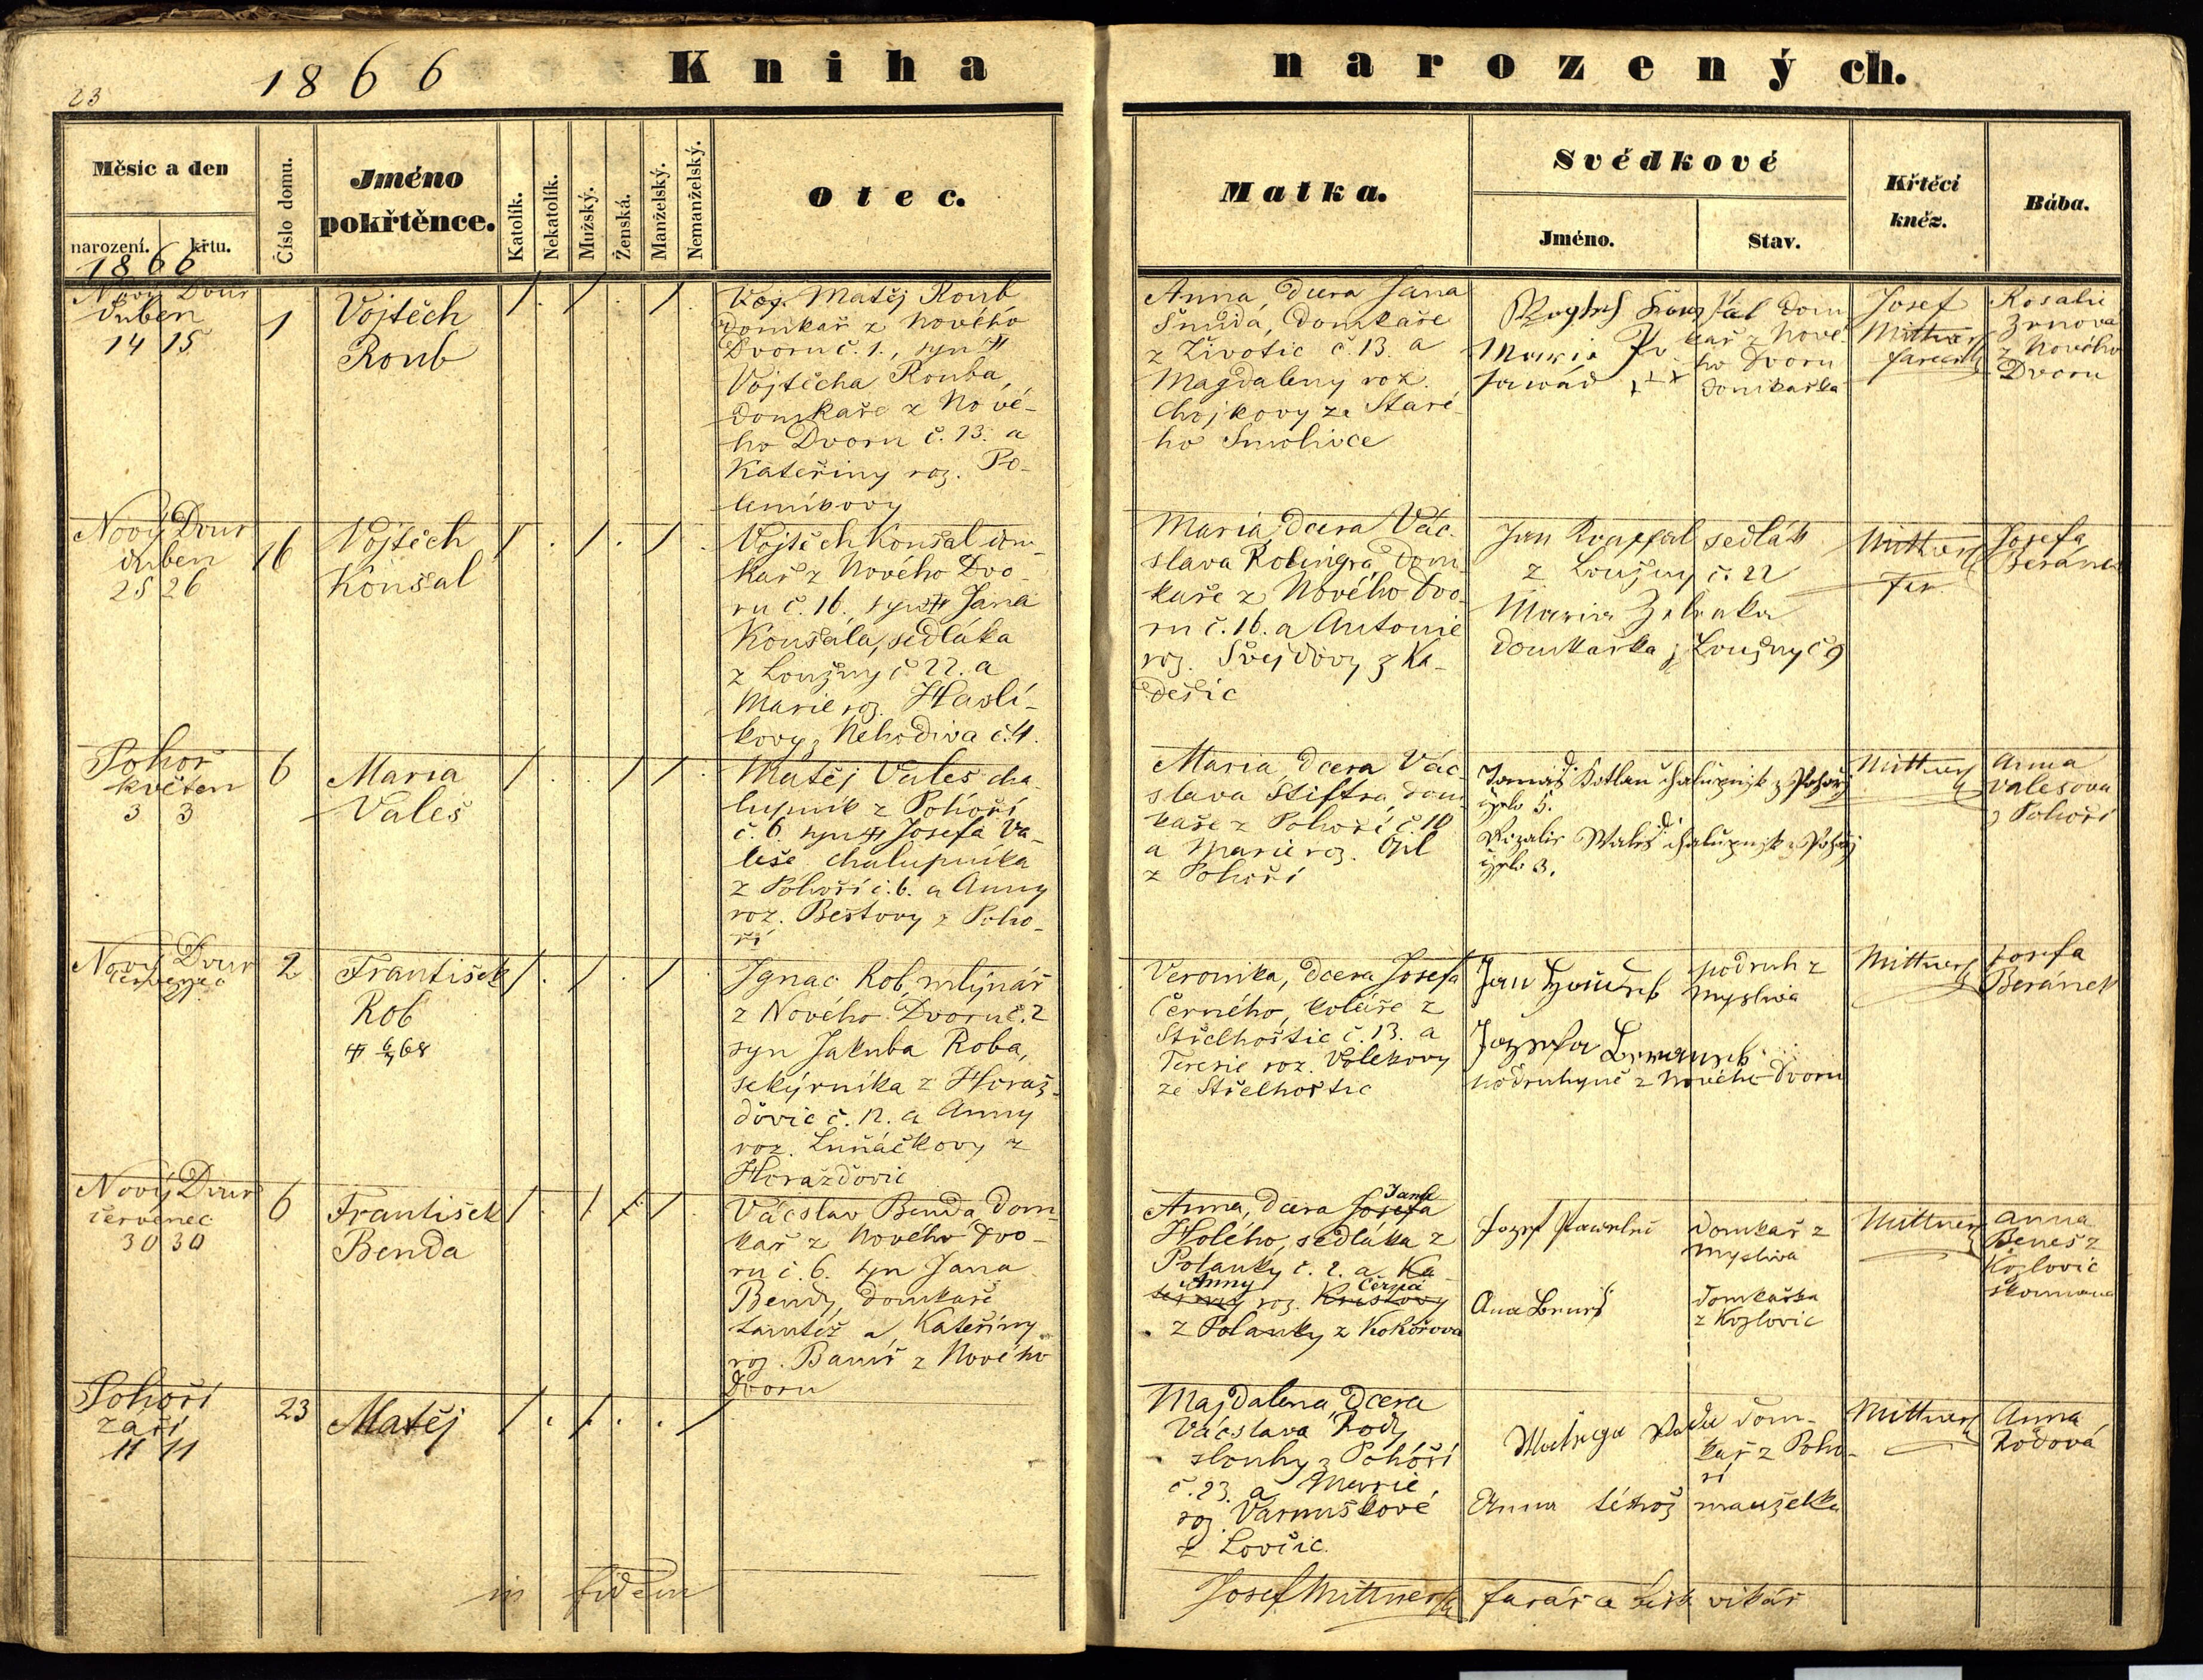 23
1866
Kniha
narozených.
Měsíc a den
narození.
křtu.
1866
Číslo domu.
Jméno
pokřtěnce.
Katolík.
Nekatolík.
Mužský.
Ženská.
Manželský.
Nemanželský.
Otec.
Matka.
Svědkové
Jméno.
Stav.
Křtěcí
kněz.
Bába.
Nový Dvur
Duben
14 15
1
Vojtěch
Roub
Matěj Roub
domkař z Nového
Dvoru č. 1., syn
Vojtěcha Rouba,
domkaře z Nové-
ho Dvoru č. 13. a
Kateřiny roz. Po-
lenníkovy
Anna, dcera Jana
Šmída, domkaře
z Životic č. 13. a
Magdaleny roz.
Chojkovy ze Staré-
ho Smolivce
dom
kař z Nové-
ho Dvoru
domkařka
Maria
Josef
Mittner
farář
Rosalie
Zrnova
z Nového
Dvoru
Nový Dvur
duben
25 26
16
Vojtěch
Konšal
Vojtěch Konšal dom-
kař z Nového Dvo-
ru č. 16. syn Jana
Konšala, sedláka
z Loužny č 22. a
Marie roz. Havlí-
kovy z Nehodiva č. 4.
Maria, dcera Vác-
slava Rolingra, dom-
kaře z Nového Dvo-
ru č. 16. a Antonie
roz. Švejdovy z Ka-
dešic
Jan sedlák
z Loužny č. 22
Maria Zelenka
domkařka z Loužny č 9
Mittner
far.
Josefa
Beránek
Pohoř
květen
3 3
6
Maria
Valeš
Matěj Valeš cha-
lupník z Pohoří
č. 6. syn Josefa Va-
leše chalupníka
z Pohoří č. 6. a Anny
roz. Beštovy z Poho-
ří
Maria, dcera Vác-
slava Štiftra, dom-
kaře z Pohoří č. 10
a Marie roz. Opl
z Pohoří
Tomáš Kotlan chalupnjk z Pohořj
čjslo 5.
Rozalie Waleš chalupnjk z Pohořj
čjslo 3.
Mittner
Anna
Valešova
z Pohoří
Nový Dvur
červenec
2
František
Rob
6/7 68
Ignac Rob, mlynář
z Nového Dvoru č. 2
syn Jakuba Roba,
sekýrníka z Horaž-
ďovic č. 12. a Anny
roz. Luňáčkovy z
Horažďovic
Veronika, dcera Josefa
Černého, koláře z
Střelhoštic č. 13. a
Terezie roz. Volekovy
ze Střelhoštic
Jan
podruh z
Mysliva
Jozefa Beranek
podruhyně z Nového Dvoru
Mittner
Josefa
Beránek
Nový Dvur
červenec
30 30
6
František
Benda
Václav Benda dom-
kař z Nového Dvo-
ru č. 6. syn Jana
Bendy, domkaře
tamtéž a Kateřiny
roz. Bamiš z Nového
Dvoru
Jana
Anna, dcera Josefa
Holého, sedláka z
Polanky č. 2. a Ka-
Anny Černá
roz. Kristovy
z Polanky z Kokořova
Jozef Pawelec
domkař z
Myslíva
Ana Beneš
domkařka
z Kozlovic
Mittner
Anna
Beneš z
Kozlovic
zkoumaná
Pohoří
září
11 11
23
Matěj
Majdalena, dcera
Václava Rody
slouhy z Pohoří
č. 23. a Marie
roz. Varmuškové
z Lovčic.
Matěj Roda dom-
kař z Poho-
ří
Anna téhož manželka
Mittner
Anna
Rodová
in fidem
Josef Mittner farář a bisk vikář